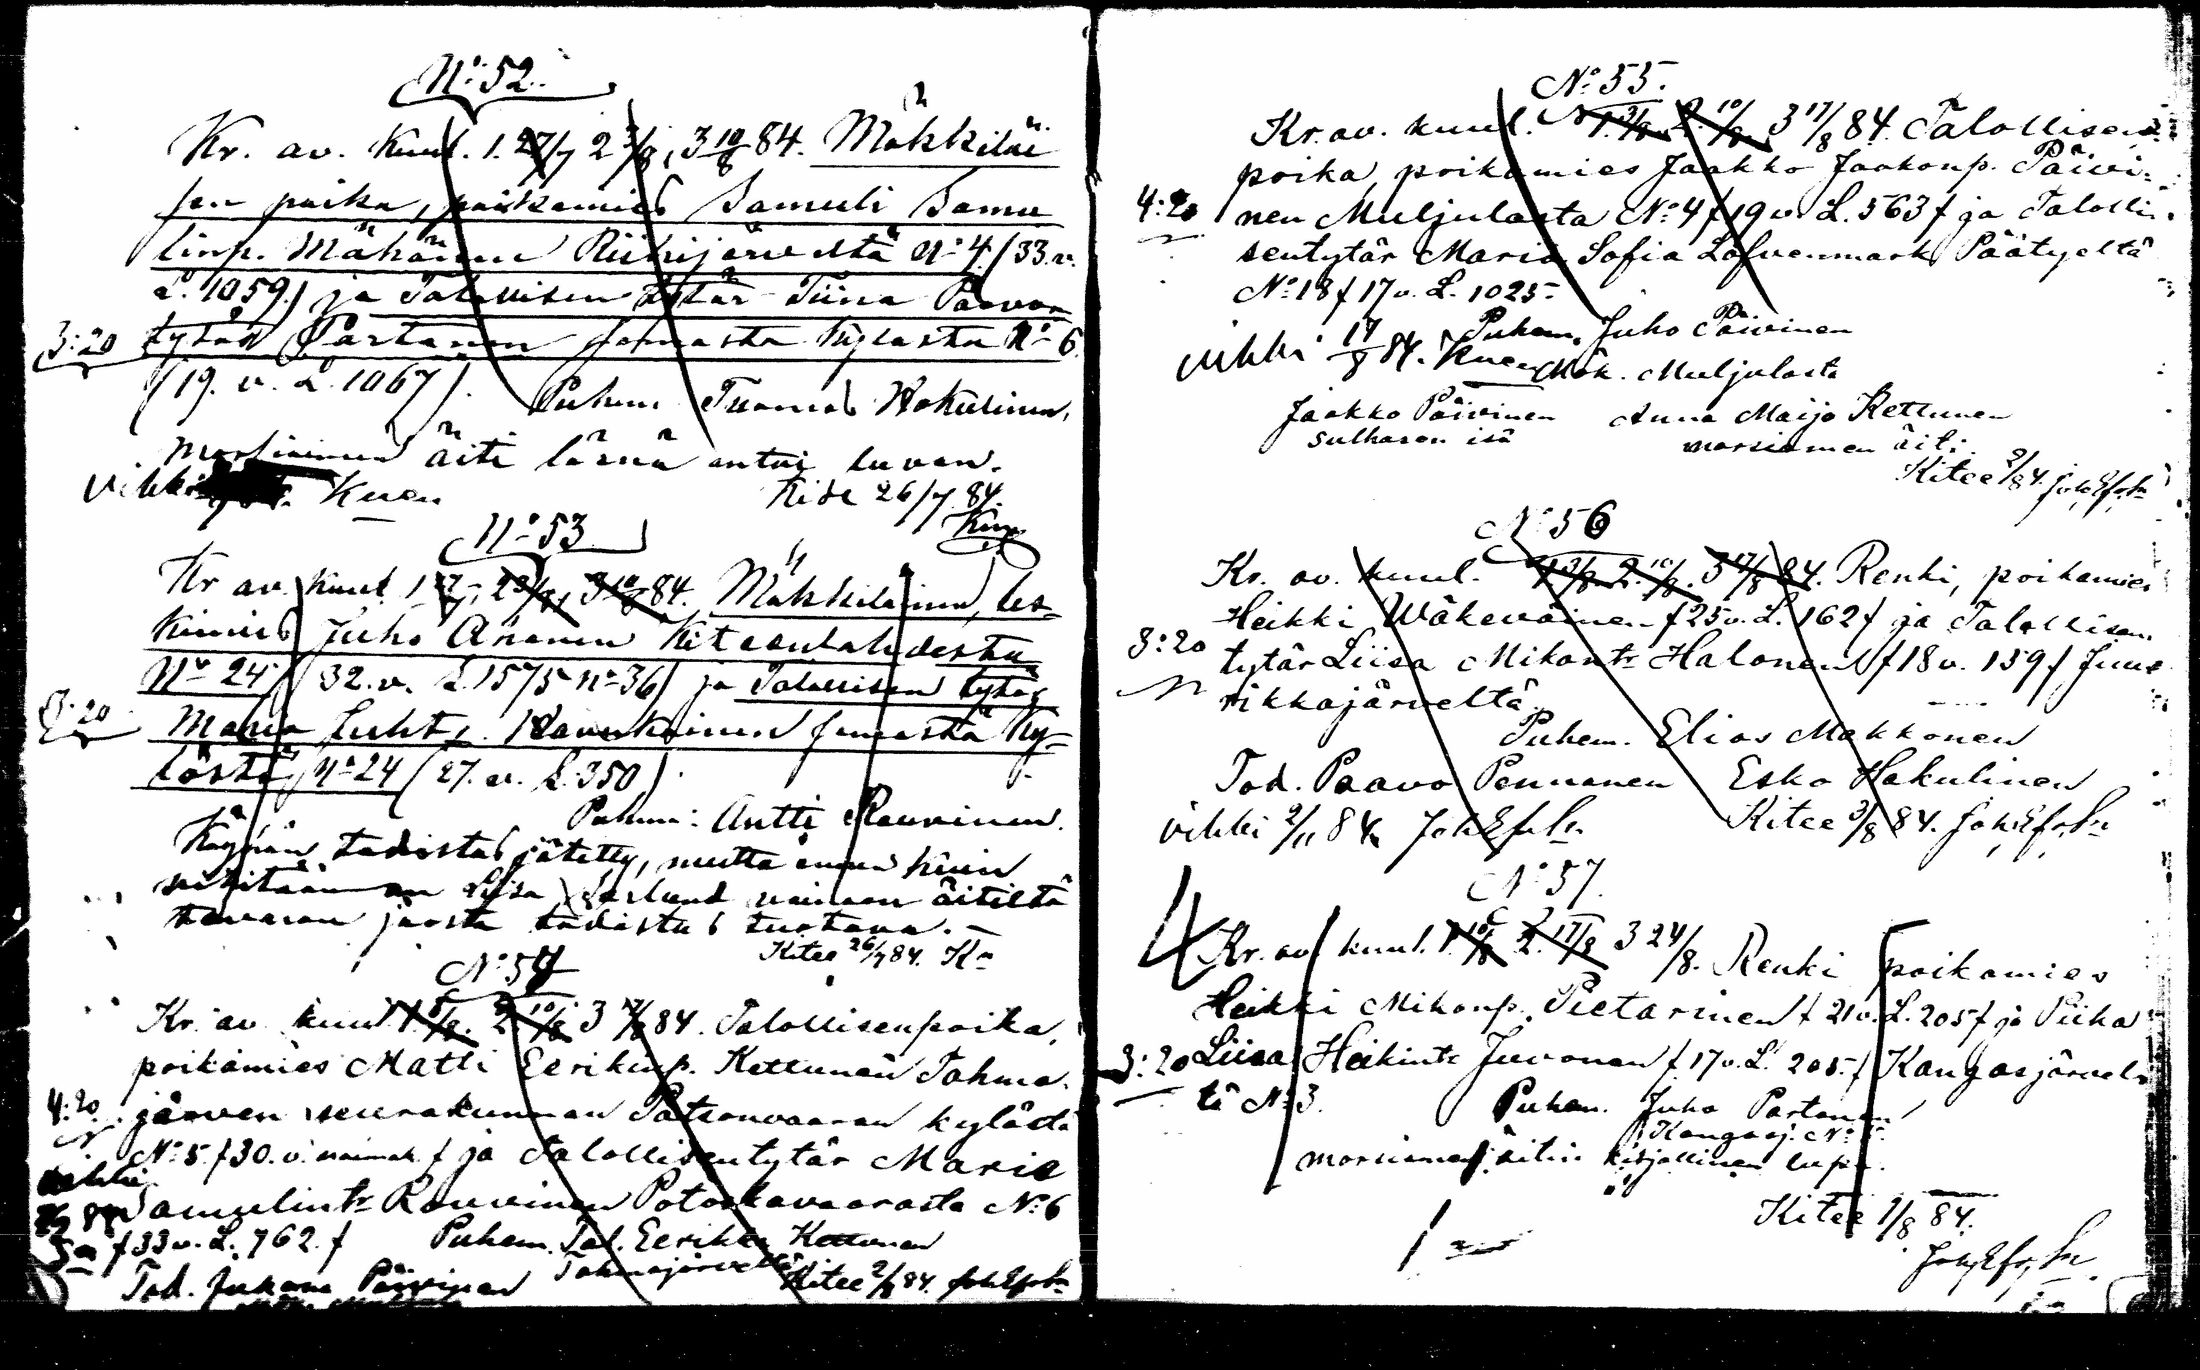 N:o 52.
Kr. av. Kuul. 1. 27/7 2 3/8, 3 10/8 84. Mökkiläi
sen poika, poikamies Samuli Samu
linp. Mähönen Riihijärveltä N:o 4 (33. v.
L. 1059.) ja Talollisen tytär Tiina Paavon
3:20 tytär Partanen samasta kylästä N:o 6
(19. v. L. 1067).
Puhem. Tuomas Hakulinen,
Morsiamen äiti läsnä antoi luvan.
vihki Kuen
Kitee 26/7 84.
N:o 53
Kr av. kuul 1 27/7, 2 3/8, 3 10/8 84. Mökkiläinen, les-
kimies Juho Ananen Kiteenlahdesta
N:o 24 (32. v. L. 1575 N:o 36) ja Talollisen tytär
3:20
Maria Juht. Havukainen samasta Ky-
lästä, N:o 24 (27. v. L. 350).
Puhem: Antti Rouvinen.
todistus jätetty, mutta ennen kuin
Liisa vainaan äitiltä
tavaran jaosta todistus tuotava.
Kitee 26/7 84. Kn
N:o 54
Kr. av. kuul. 1. 3/8. 2 10/8 3 17/8 84. Talollisenpoika,
poikamies Matti Eerikinp. Kettunen Tohma-
4:20. järven seurakunnan Patsonvaaran kylästä
N:o 5. f 30. v. f ja Talollisentytär Maria
vihki
Samulintr Rouvinen Potoskavaarasta N:o 6
f 33 v. L. 762. f Puhem. Tal. Eerikki Kettunen
Tohmajärveltä
Tod. Juhana Päivinen Kitee 2/8 84.
N:o 55.
Kr. av. kuul. 1. 3/8. 2. 10/8 3 17/8 84. Talollisen
poika, poikamies Jaakko Jaakonp. Päivi-
4:20 nen Muljulasta N:o 4 f 19 v. L. 563 f ja Talolli-
sentytär Maria Sofia Löfvenmark Päätyeltä
N:o 18 f 17 v. L. 1025.
Puhem. Juho Päivinen
vihki 17/8 84. Kuen Mök. Muljulasta
Jaakko Päivinen Anna Maija Kettunen
sulhasen isä morsiamen äiti.
Kitee 2/8 84.
N:o 56
Kr. av. kuul. 1 3/8 2. 10/8. 3 17/8 84. Renki, poikamies
Heikki Wäkeväinen f 25 v. L. 162 f ja Talollisen
3:20 tytär Liisa Mikontr Halonen f 18 v. 159 f Juu-
rikkajärveltä.
Puhem. Elias Makkonen
Tod. Paavo Pennanen Esko Hakulinen
vihki 2/11 84. Kitee 3/8 84.
N:o 57.
Kr. av. kuul. 1. 10/8 2. 17/8 3 24/8. Renki poikamies
Heikki Mikonp. Pietarinen f 21 v. L. 205 f ja Piika
3:20 Liisa Heikintr Juvonen f 17 v. L. 205. f Kangasjärvel-
tä N:o 3. Puhem. Juho Partanen
Kangasj. N:o
morsiamen äitin kirjallinen lupa.
Kitee 1/8 84.